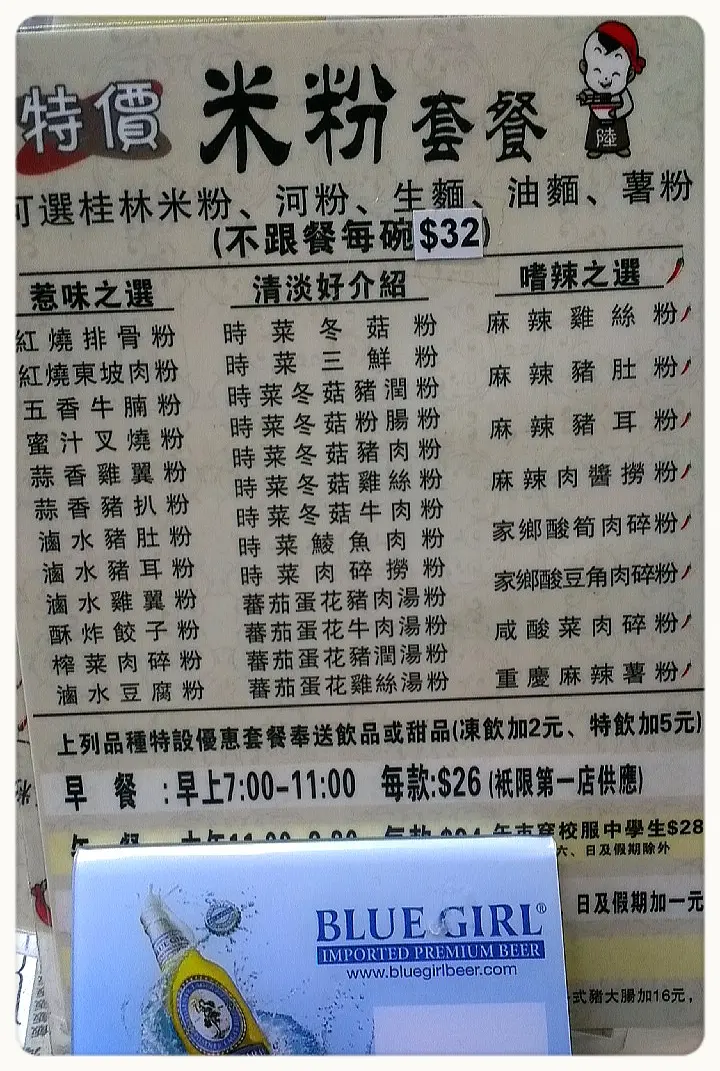 特價 米粉 套餐
陸
可選桂林米粉、河粉、生麵、油麵、薯粉
(不跟餐每碗$32)
惹味之選
紅燒排骨粉
紅燒東坡肉粉
五香牛腩粉
蜜汁叉燒粉
蒜香雞翼粉
蒜香豬扒粉
滷水豬肚粉
滷水豬耳粉
滷水雞翼粉
酥炸餃子粉
榨菜肉碎粉
滷水豆腐粉
清淡好介紹
時菜冬菇粉
時菜三鮮粉
時菜冬菇豬潤粉
時菜冬菇粉腸粉
時菜冬菇豬肉粉
時菜冬菇雞絲粉
時菜冬菇牛肉粉
時菜鯪魚肉粉
時菜肉碎撈粉
蕃茄蛋花豬肉湯粉
蕃茄蛋花牛肉湯粉
蕃茄蛋花豬潤湯粉
蕃茄蛋花雞絲湯粉
嗜辣之選
麻辣雞絲粉
麻辣豬肚粉
麻辣豬耳粉
麻辣肉醬撈粉
家鄉酸筍肉碎粉
家鄉酸豆角肉碎粉
咸酸菜肉碎粉
重慶麻辣薯粉
上列品種特設優惠套餐奉送飲品或甜品(凍飲加2元、特飲加5元)
早餐:早上7:00-11:00 每款:$26 (衹限第一店供應)
穿校服中學生$28
六、日及假期除外
日及假期加一元
式豬大腸加16元,
BLUE GIRL®
IMPORTED PREMIUM BEER
www.bluegirlbeer.com